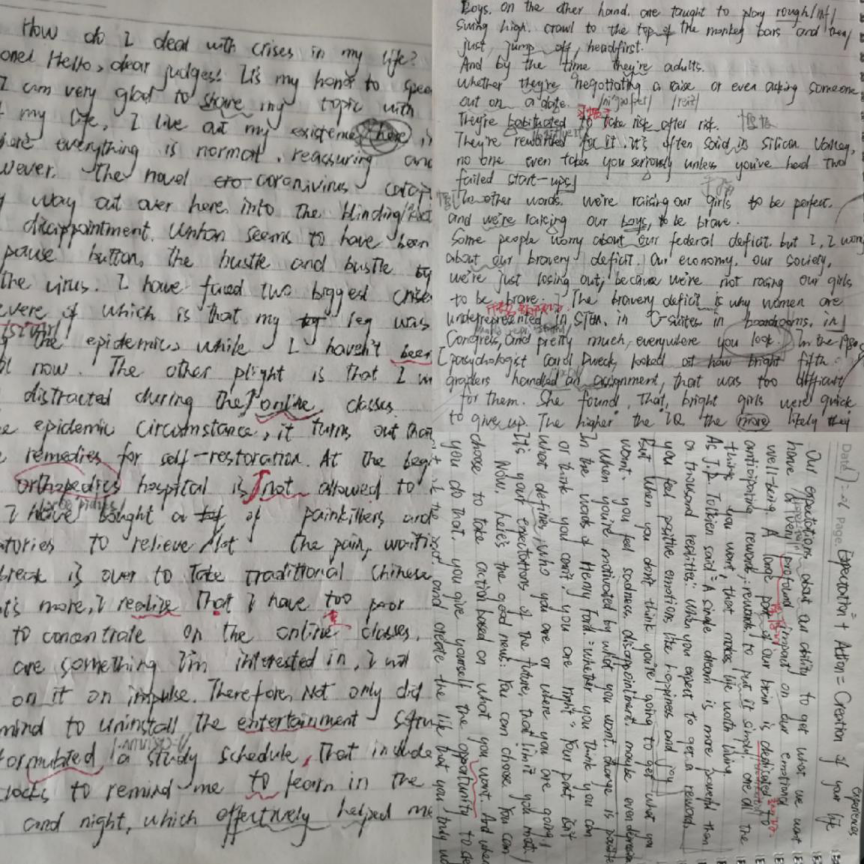 How do I deal with crises in my life?
one! Hello, dear judges! It's my honor to spea
I am very glad to share my topic with
my life. I live out my existence here is
here everything is normal, reassuring and
wever. The novel coronavirus
way out over here into the blinding
disappointment. Wuhan seems to have been
pause button, the hustle and bustle by
the virus. I have faced two biggest crises
evere of which is that my leg was
the epidemic, while I haven't been
l now. The other plight is that I'm
distracted during the online classes.
e epidemic circumstance, it turns out that
remedies for self-restoration. At the begi
orthopedics hospital is not allowed to
I have bought a of painkillers and
tories to relieve the pain, waiting
break is over to take traditional Chinese
at's more, I realize that I have too poor
to concentrate on the online classes.
are something I'm interested in, I will
on it on impulse. Therefore, not only did
mind to uninstall the entertainment
formulated a study schedule, that include
clocks to remind me to learn in the
and night, which effectively helped me
Boys, on the other hand, are taught to play rough
swing high, crawl to the top of the monkey bars and they
just jump off, headfirst.
And by the time they're adults.
Whether they're negotiating a raise or even asking someone
out on a date.
They're habituated to take risk after risk.
They're rewarded for it. it's often said in Silicon Valley,
no one even takes you seriously unless you've had two
failed start-ups
In other words, we're raising our girls to be perfect.
and we're raising our boys, to be brave.
Some people worry about our federal deficit but I, I worry
about our bravery deficit. Our economy, our society,
we're just losing out, because we're not raising our girls
to be brave. The bravery deficit is why women are
underrepresented in STEM, in C-suites in boardrooms, in
Congress, and pretty much, everywhere you look. In the
psychologist Carol Dweck, looked at how bright fifth
graders handled an assignment, that was too difficult
for them. She found, that, bright girls were quick
to give up. The higher the IQ the more likely they
Expectation + Action = Creation of your life
experience
Our expectations about our ability to get what we want
have a very profound impact on our emotional
well-being. A large part of our brain is dedicated to
anticipating rewards; rewards, to put it simply, are the
things you want, that makes life worth living.
As J.R. Tolkien said: "A single dream is more powerful than
a thousand realities." When you expect to get a reward,
you feel positive emotions like happiness and joy.
But when you don't think you're going to get what you
want, you feel sadness, disappointment, maybe even
When you're motivated by what you want, change is possible
In the words of Henry Ford, "Whether you think you can
or think you can't, you are right." Your past isn't
what defines who you are or where you are going,
It's your expectations of the future, that limit you most,
Now, here's the good news. You can choose. You can
choose to take action based on what you want. And when
you do that, you give yourself the opportunity to
and create the life that you truly